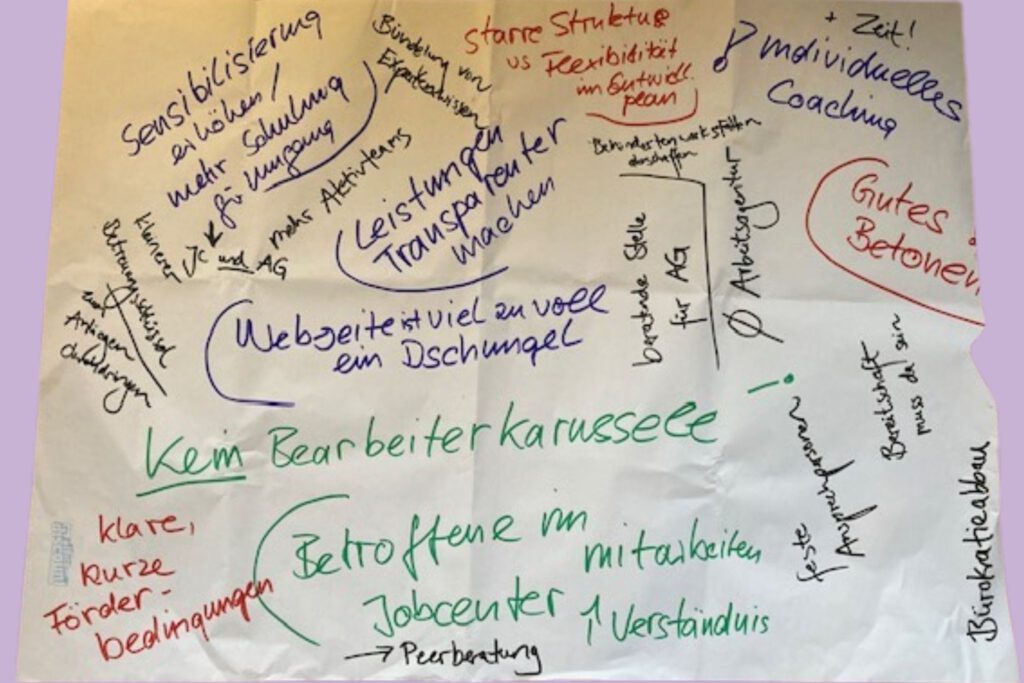 Sensibilisierung
erhöhen /
mehr Schulung
für Umgang
JC und AG
Bündelung von
Expertenwissen
mehr Aktivteams
starre Struktur
vs Flexibilität
im Entwickl.
plan
+ Zeit!
! Individuelles
Coaching
Leistungen
Transparenter
machen
Behindertenwerkstätten
abschaffen
beratende Stelle
für AG
Ø Arbeitsagentur
Gutes
Betonen
kleinerer
Betreuungsschlüssel
Anliegen
Webzeite ist viel zu voll
ein Dschungel
Kein Bearbeiterkarussell!
feste
Ansprechpersonen
Bereitschaft
muss da sein
Bürokratieabbau
klare,
kurze
Förder-
bedingungen
Betroffene im
mitarbeiten
Jobcenter
↑ Verständnis
→ Peerberatung